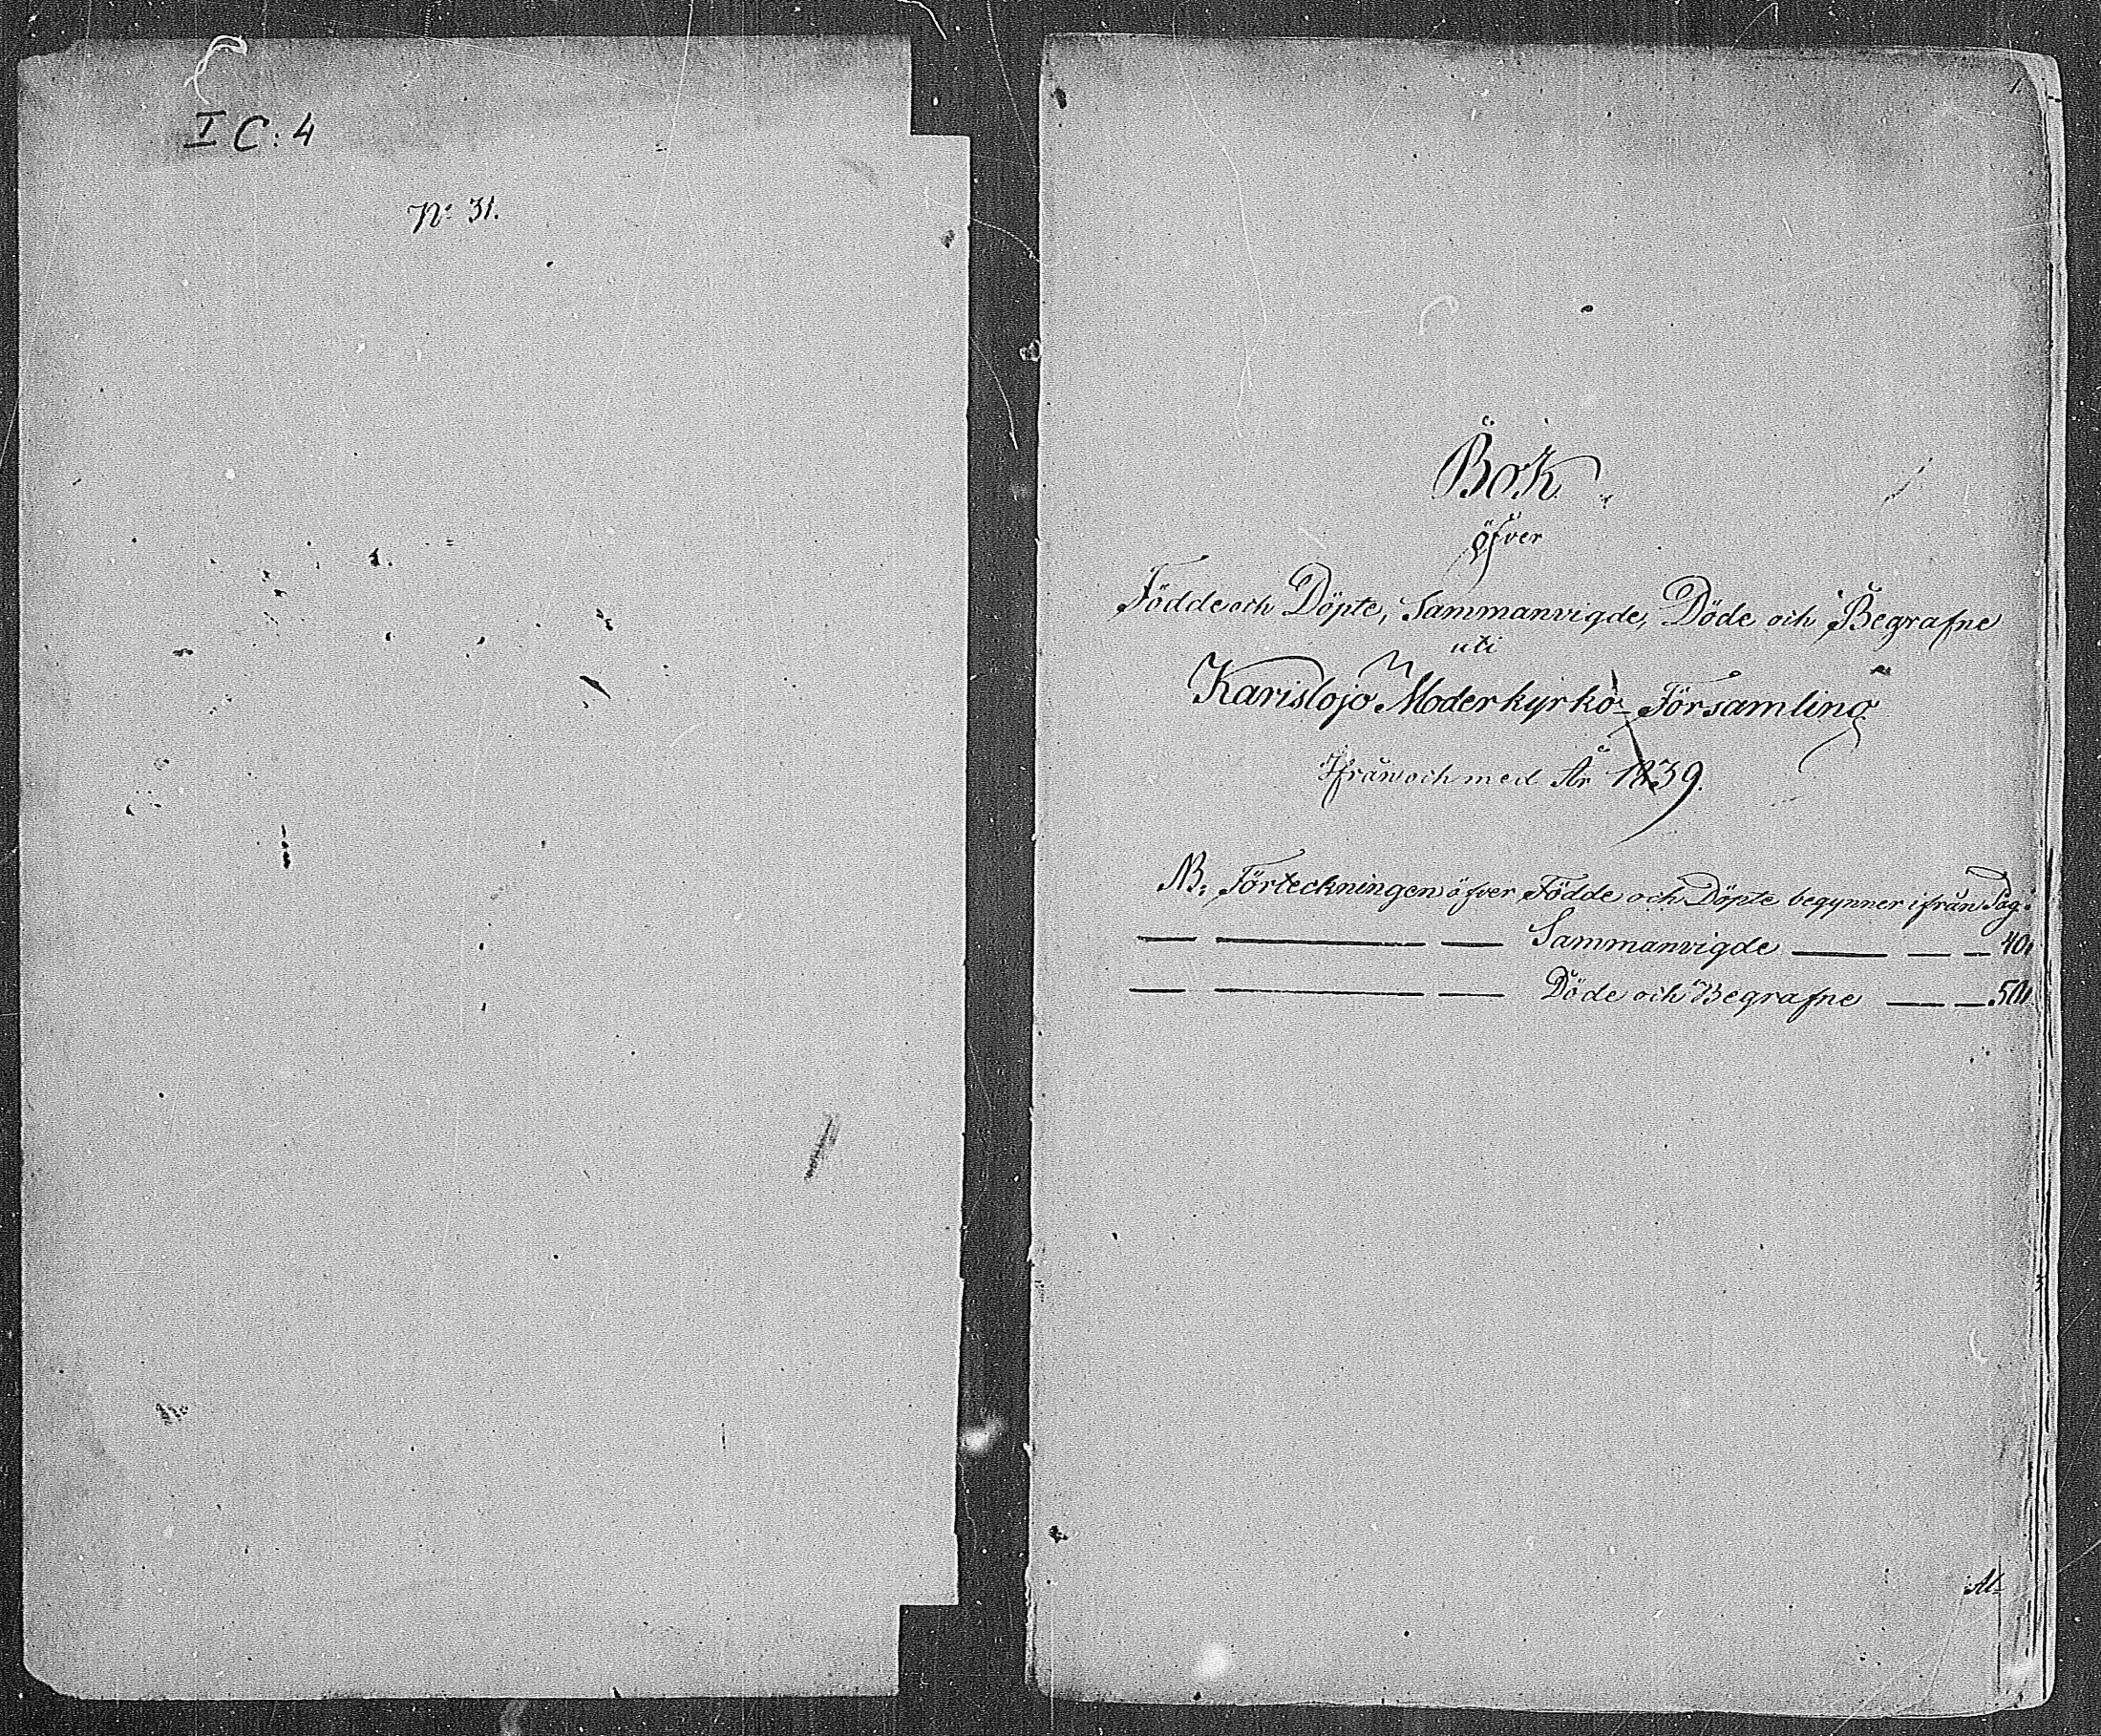 I C: 4
No 31.
1.
Bok
öfver
Födde och Döpte, Sammanvigde, Döde och Begrafne
uti
Karislojo Moderkyrko-Församling
Ifrån och med År 1839.
NB: Förteckningen öfver Födde och Döpte begynner ifrån Pag.
— — — Sammanvigde — — — 401
— — — Döde och Begrafne — — 501